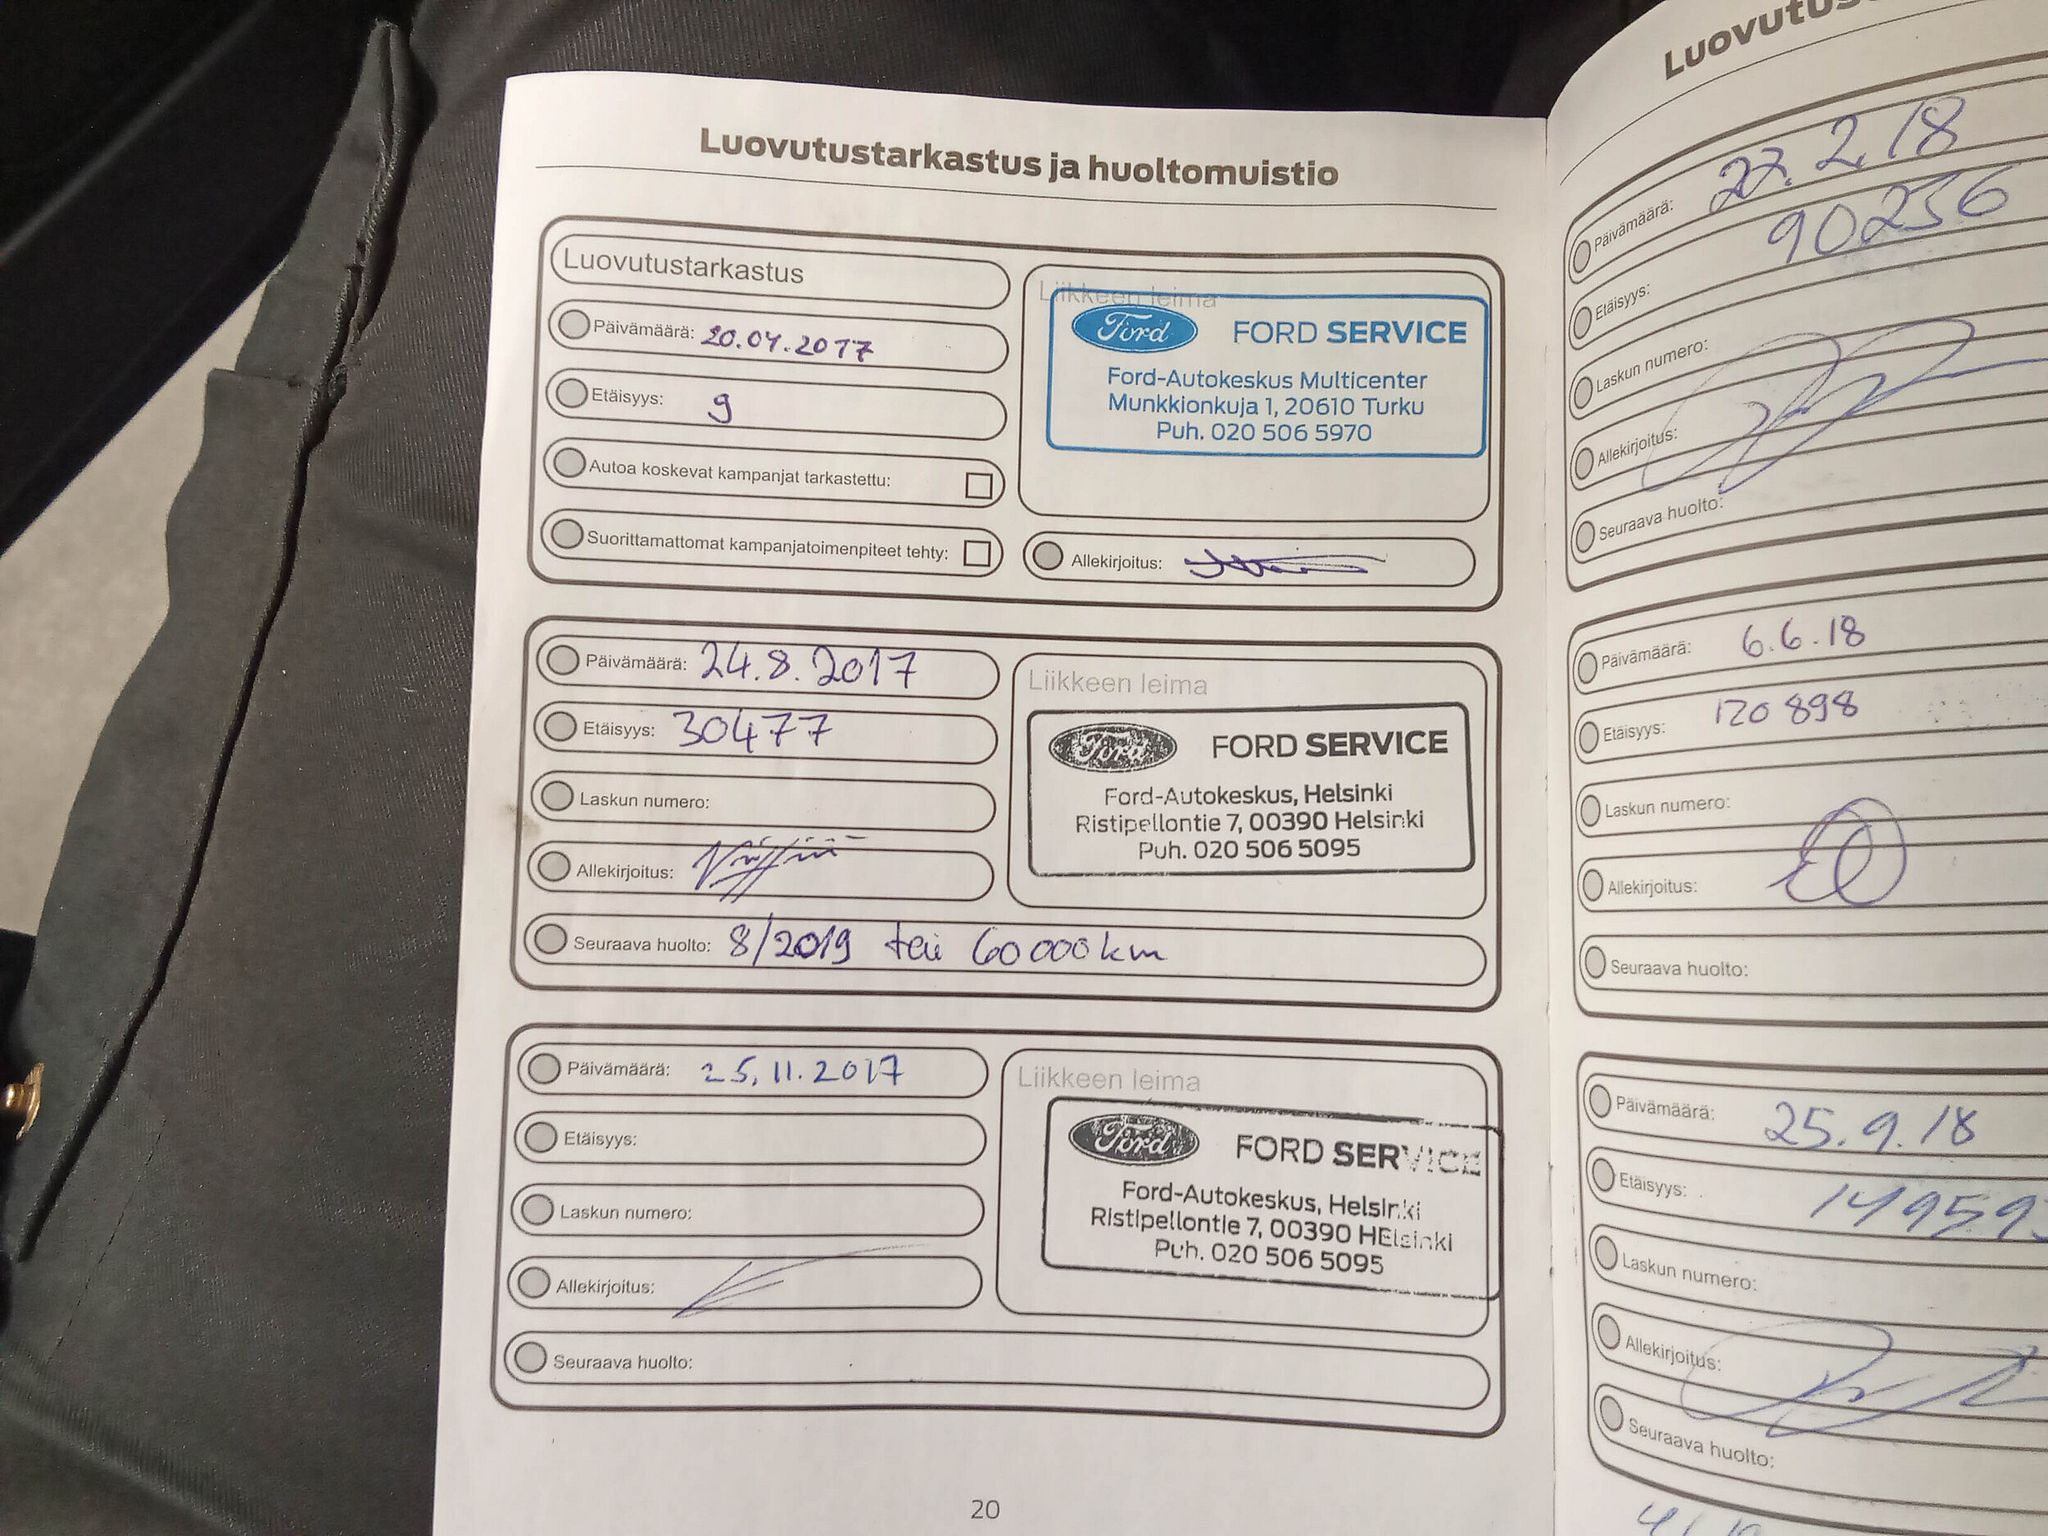 Luovutustarkastus ja huoltomuistio
Luovutustarkastus
Päivämäärä: 20.04.2017
Etäisyys: 9
Autoa koskevat kampanjat tarkastettu:
Suorittamattomat kampanjatoimenpiteet tehty:
Liikkeen leima
Ford FORD SERVICE
Ford-Autokeskus Multicenter
Munkkionkuja 1, 20610 Turku
Puh. 020 506 5970
Allekirjoitus:
Päivämäärä: 24.8.2017
Etäisyys: 30477
Laskun numero:
Allekirjoitus:
Seuraava huolto: 8/2019 tai 60000km
Liikkeen leima
Ford FORD SERVICE
Ford-Autokeskus, Helsinki
Ristipellontie 7, 00390 Helsinki
Puh. 020 506 5095
Päivämäärä: 25.11.2017
Etäisyys:
Laskun numero:
Allekirjoitus:
Seuraava huolto:
Liikkeen leima
Ford FORD SERVICE
Ford-Autokeskus, Helsinki
Ristipellontie 7, 00390 HElsinki
Puh. 020 506 5095
20
Päivämäärä: 27.2.18
Etäisyys: 90256
Laskun numero:
Allekirjoitus:
Seuraava huolto:
Päivämäärä: 6.6.18
Etäisyys: 120898
Laskun numero:
Allekirjoitus:
Seuraava huolto:
Päivämäärä: 25.9.18
Etäisyys: 149593
Laskun numero:
Allekirjoitus:
Seuraava huolto: